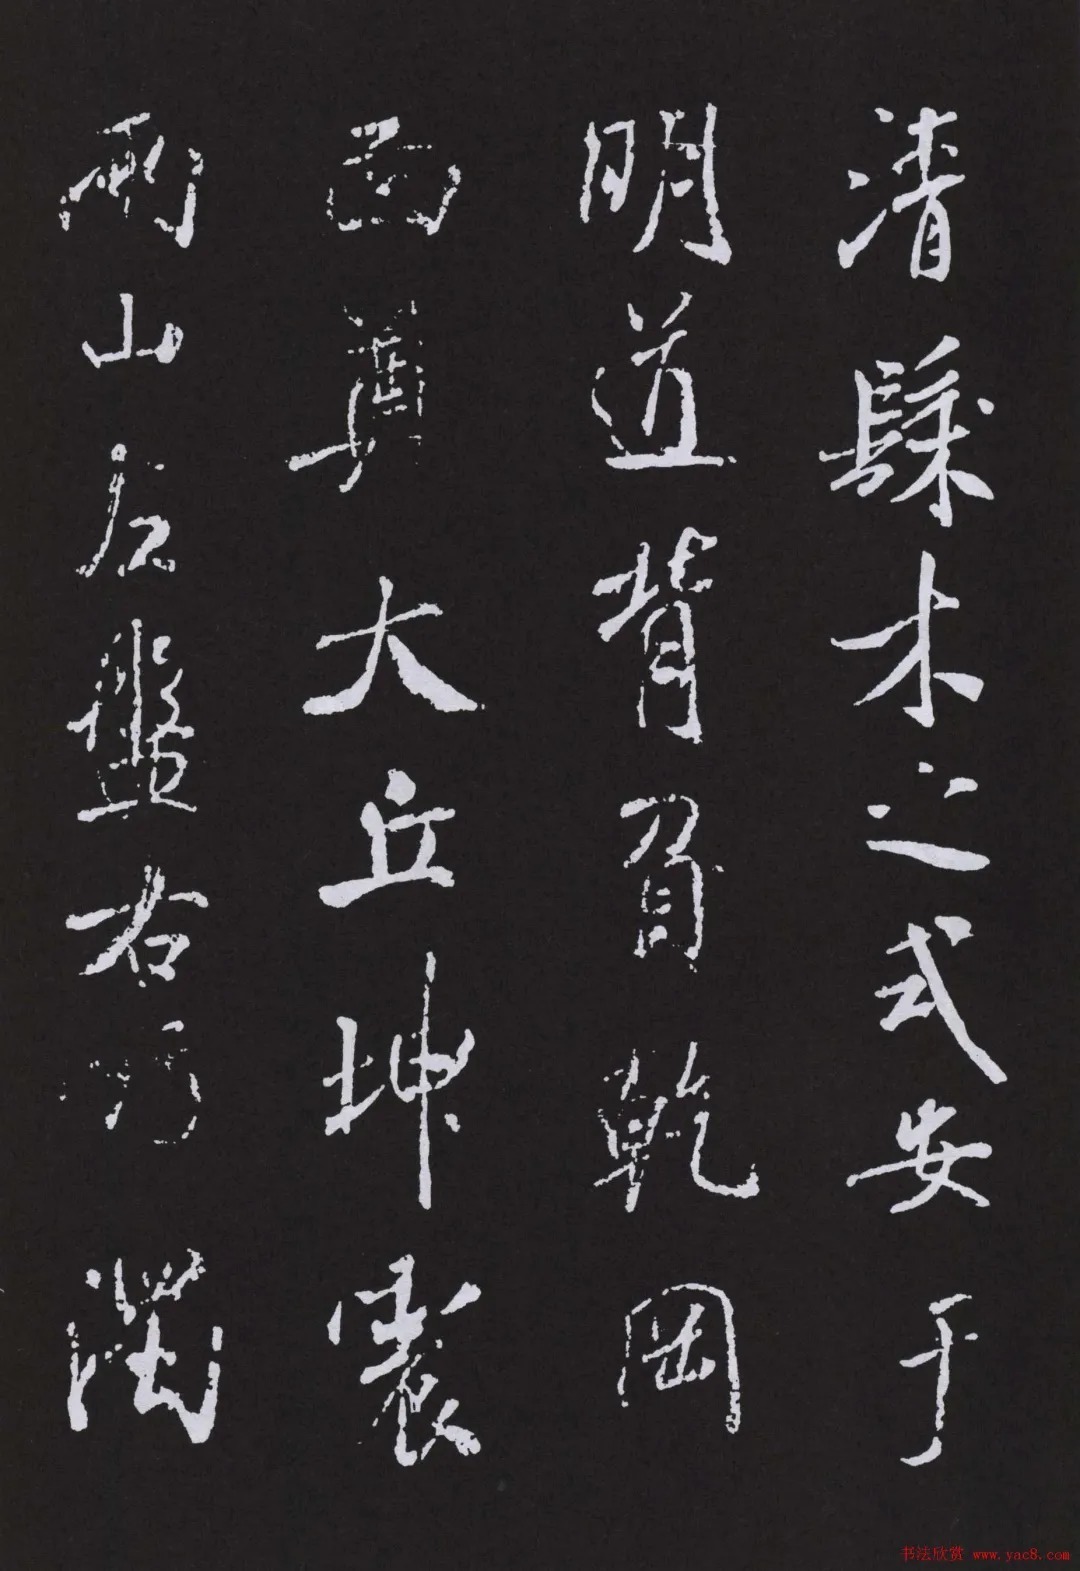 清肆木之式安于
明道背負乾岡
面巽大丘坤震
兩山左盤右
书法欣赏 www.yac8.com